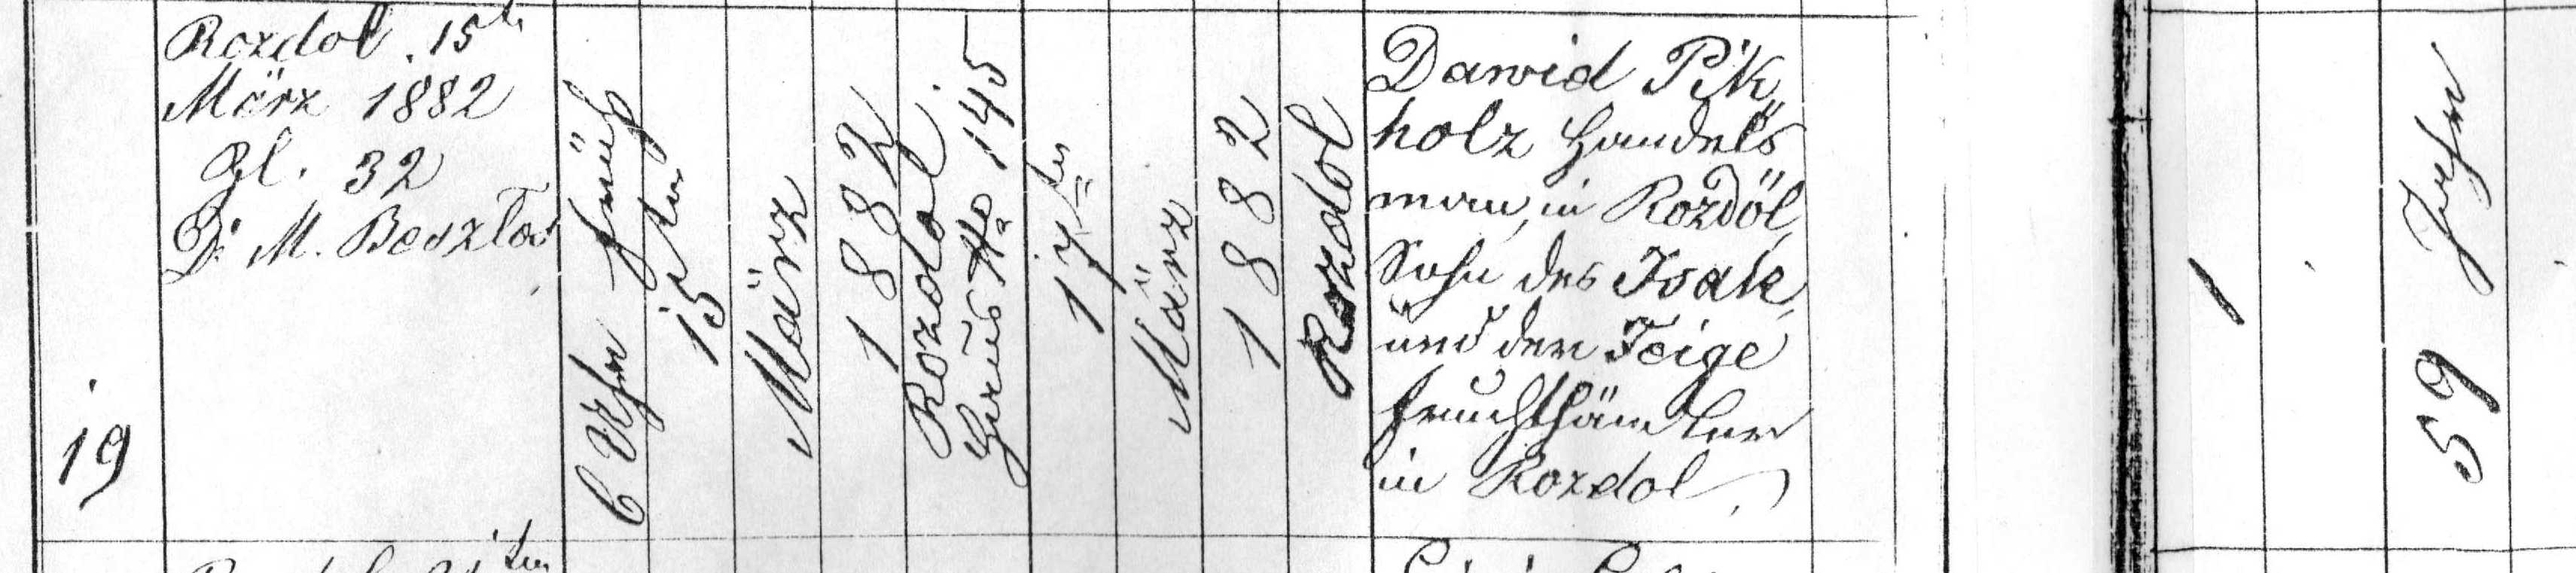 19
Rozdol. 15t
März 1882
Zl. 32
Dr M. Beszlos
6 Uhr früh
15ten
März
1882
Rozdol
Haus No 145
17ten
März
1882
Rozdol
Dawid Pik
holz Handels
mann, in Rozdól,
Sohn des Isak,
und der Feige
Fruchthändler
in Rozdol
1
59 Jahre